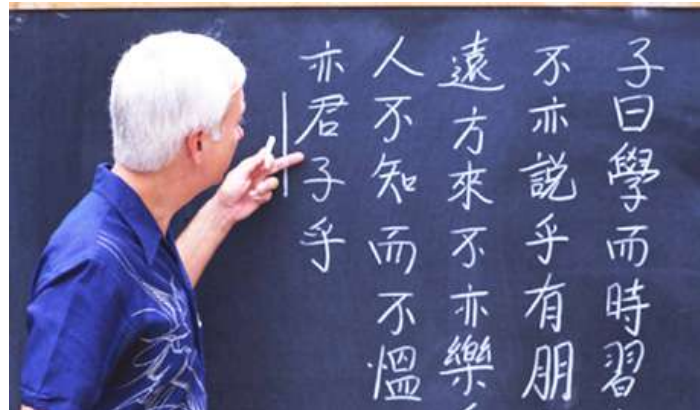 子曰學而時習
不亦説乎有朋
遠方來不亦樂
人不知而不愠
亦君子乎